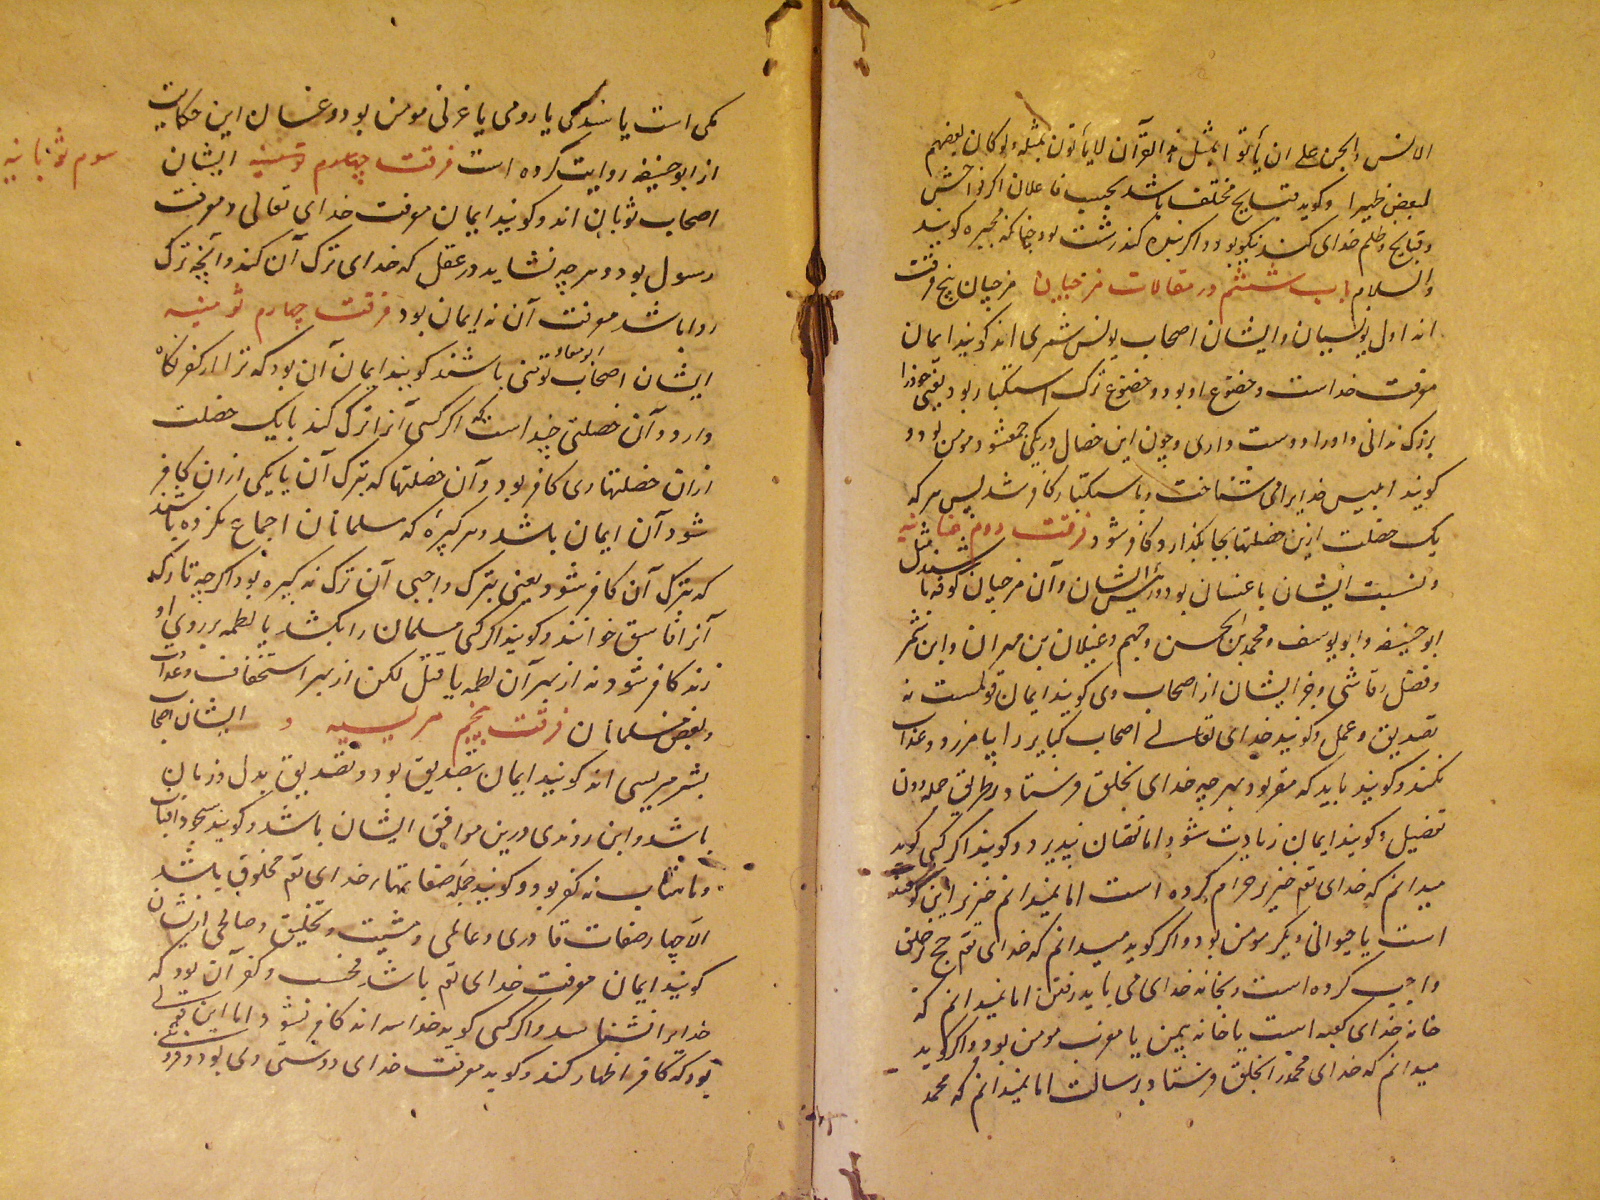 الانس والجن علی ان یأتوا بمثل هذا القرآن لا یأتون بمثله ولو کان بعضهم
لبعض ظهیرا و کوید قبایح مختلف باشد بحسب فاعلان اکر فواحش
و قبایح و ظلم خدای کند نیکو بود و اکر بنده کند زشت بود چنانکه مجبره کویند
والسلام باب ششم در مقالات مرجیان مرجیان پنج فرقت
اند اول یونسیان و ایشان اصحاب یونس شمری اند کویند ایمان
معرفت خداست و خضوع او بود و خضوع ترک استکبار بود یعنی خود را
بزرک ندانی و او را دوست داری و چون این خصال در یکی جمع شود مومن بود و
کویند ابلیس خدایرا می شناخت و باستکبار کافر شد پس هر که
یک خصلت ازین خصلتها بجا بگذارد کافر شود فرقت دوم غسانیه
و نسبت ایشان با غسان بود و رئیس ایشان و آن مرجیان کوفه باشند مثل
ابو حنیفه و ابو یوسف و محمد بن الحسن و جهم و غیلان بن مهران و ابن شمر
و فضل رقاشی و جز ایشان از اصحاب وی کویند ایمان قولست نه
تصدیق و عمل و کویند خدای تعالی اصحاب کبایر را بیامرزد و عذاب
نکند و کویند باید که مقر بود بهر چه خدای بخلق فرستاد بطریق جمله دون
تفصیل و کویند ایمان زیادت شود اما نقصان نپذیرد و کویند اکر کسی کوید
میدانم که خدای تعم خنزیر حرام کرده است اما نمیدانم خنزیر این کوسفند
است یا حیوانی دیکر مومن بود و اکر کوید میدانم که خدای تعم حج بر خلق
واجب کرده است و بخانه خدای می باید رفتن اما نمیدانم که
خانه خدای کعبه است یا خانه بیمن یا مغرب مومن بود و اکر کوید
میدانم که خدای محمد را بخلق فرستاد برسالت اما نمیدانم که محمد
مکی است یا سندی یا رومی یا غزنی مومن بود و غسان این حکایت
از ابو حنیفه روایت کرده است فرقت چهارم ایشان
سوم ثوبانیه
اصحاب ثوبان اند و کویند ایمان معرفت خدای تعالی و معرفت
رسول بود و هر چه نشاید در عقل که خدای ترک آن کند و آنچه ترک
روا باشد معرفت آن نه ایمان بود فرقت چهارم تومنیه
ایشان اصحاب ابو معاد تومنی باشند کویند ایمان آن بود که ترا از کفر نکاه
دارد و آن خصلتی چند است که اکر کسی آنرا ترک کند یا یک خصلت
ازان خصلتها وی کافر بود و آن خصلتها که بترک آن یا یکی ازان کافر
شود آن ایمان باشد و هر کبیره که مسلمانان اجماع نکرده باشند
که بترک آن کافر شود یعنی بترک واجبی آن ترک نه کبیره بود اکر چه تارک
آنرا فاسق خوانند و کویند اکر کسی مسلمان را بکشد یا لطمه بر روی او
زند کافر شود نه از بهر آن لطمه یا قتل لکن از بهر استخفاف و عداوت
و بغض مسلمانان فرقت پنجم مریسیه و ایشان اصحاب
بشر مریسی اند کویند ایمان تصدیق بود و تصدیق بدل و زبان
باشد و ابن روندی درین موافق ایشان باشد و کویند سجود آفتاب
و ماهتاب نه کفر بود و کویند جمله صفاتهاء خدای تعم مخلوق باشد
الا چهار صفات قادری و عالمی و مشیت و تخلیق و صالحی ازیشان
کویند ایمان معرفت خدای تعم باشد محسب و کفر آن بود که
خدایرا نشناسد و اکر کسی کوید خدا سه اند کافر نشود اما این قولی
بود که کافر اظهار کند و کوید معرفت خدای دوستی وی بود و فرو